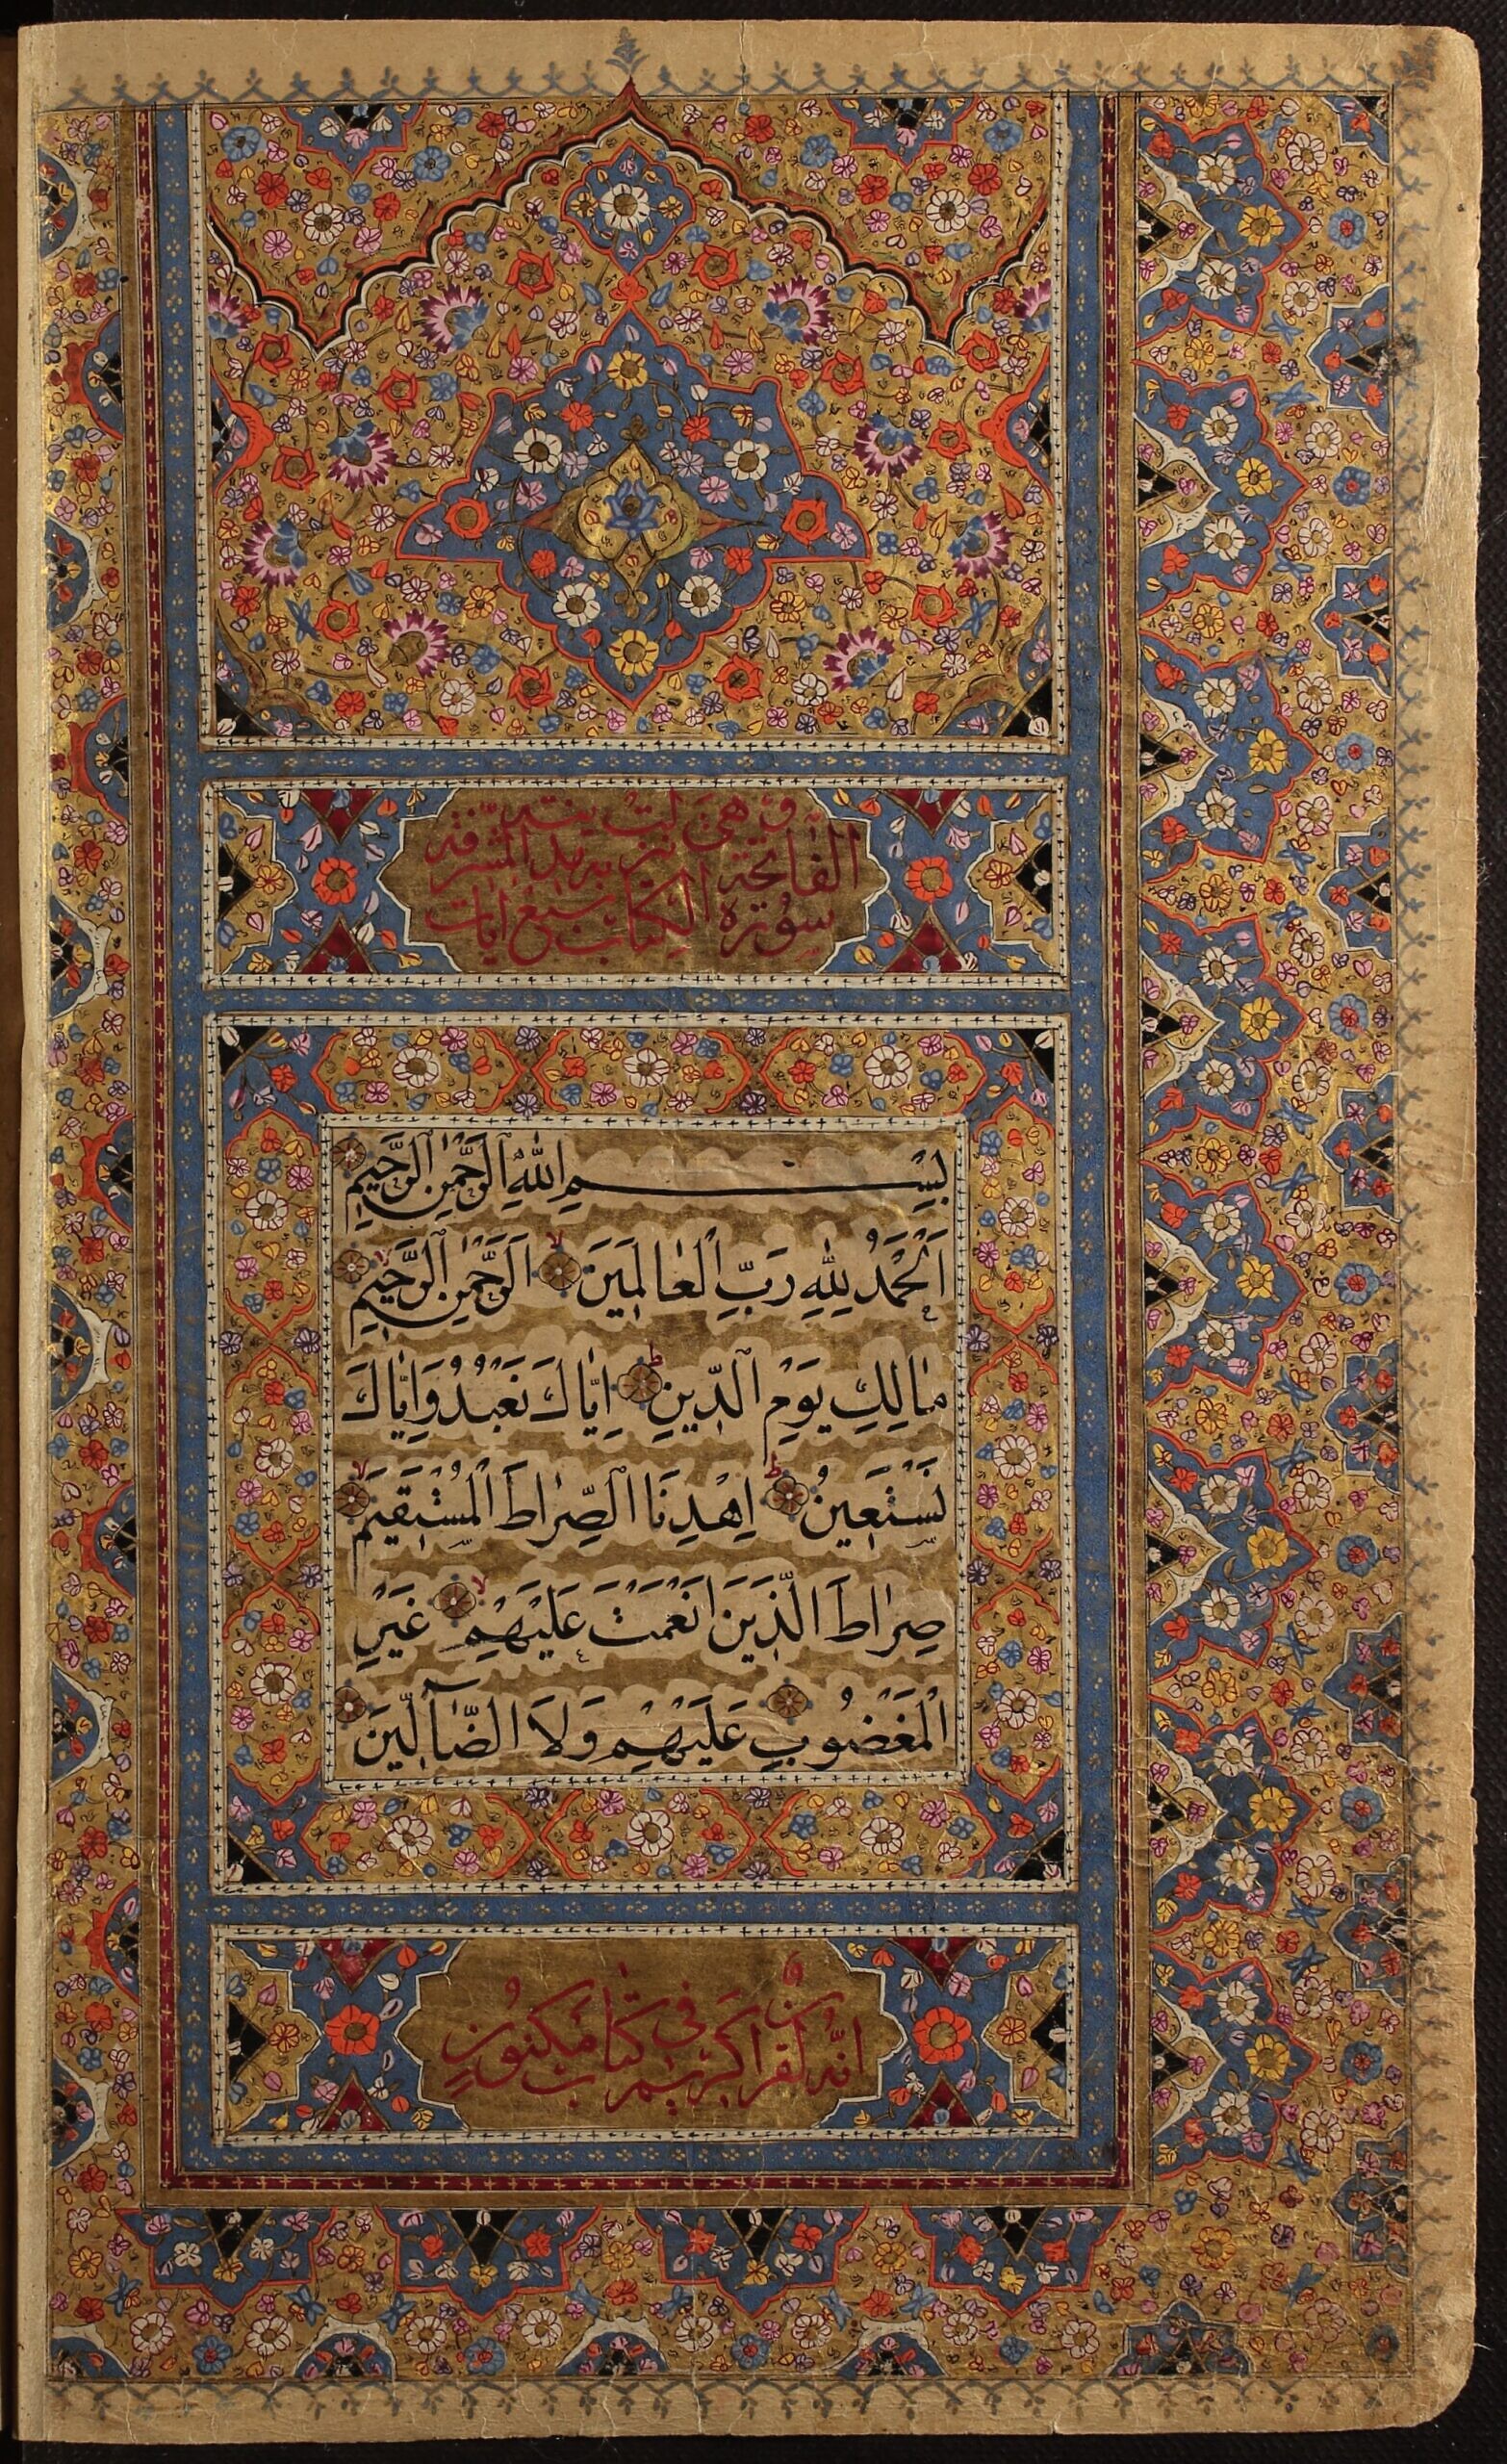 سورة الفاتحة الكتاب سبع آيات
بِسْمِ اللّٰهِ الرَّحْمٰنِ الرَّحِيمِ
اَلْحَمْدُ لِلّٰهِ رَبِّ الْعَالَمِينَ لا اَلرَّحْمٰنِ الرَّحِيمِ لا
مَالِكِ يَوْمِ الدِّينِ ط اِيَّاكَ نَعْبُدُ وَاِيَّاكَ
نَسْتَعِينُ ط اِهْدِنَا الصِّرَاطَ الْمُسْتَقِيمَ لا
صِرَاطَ الَّذِينَ اَنْعَمْتَ عَلَيْهِمْ لا غَيْرِ
الْمَغْضُوبِ عَلَيْهِمْ وَلَا الضَّآلِّينَ
انَّهُ لقرآن كريم في كتاب مكنون